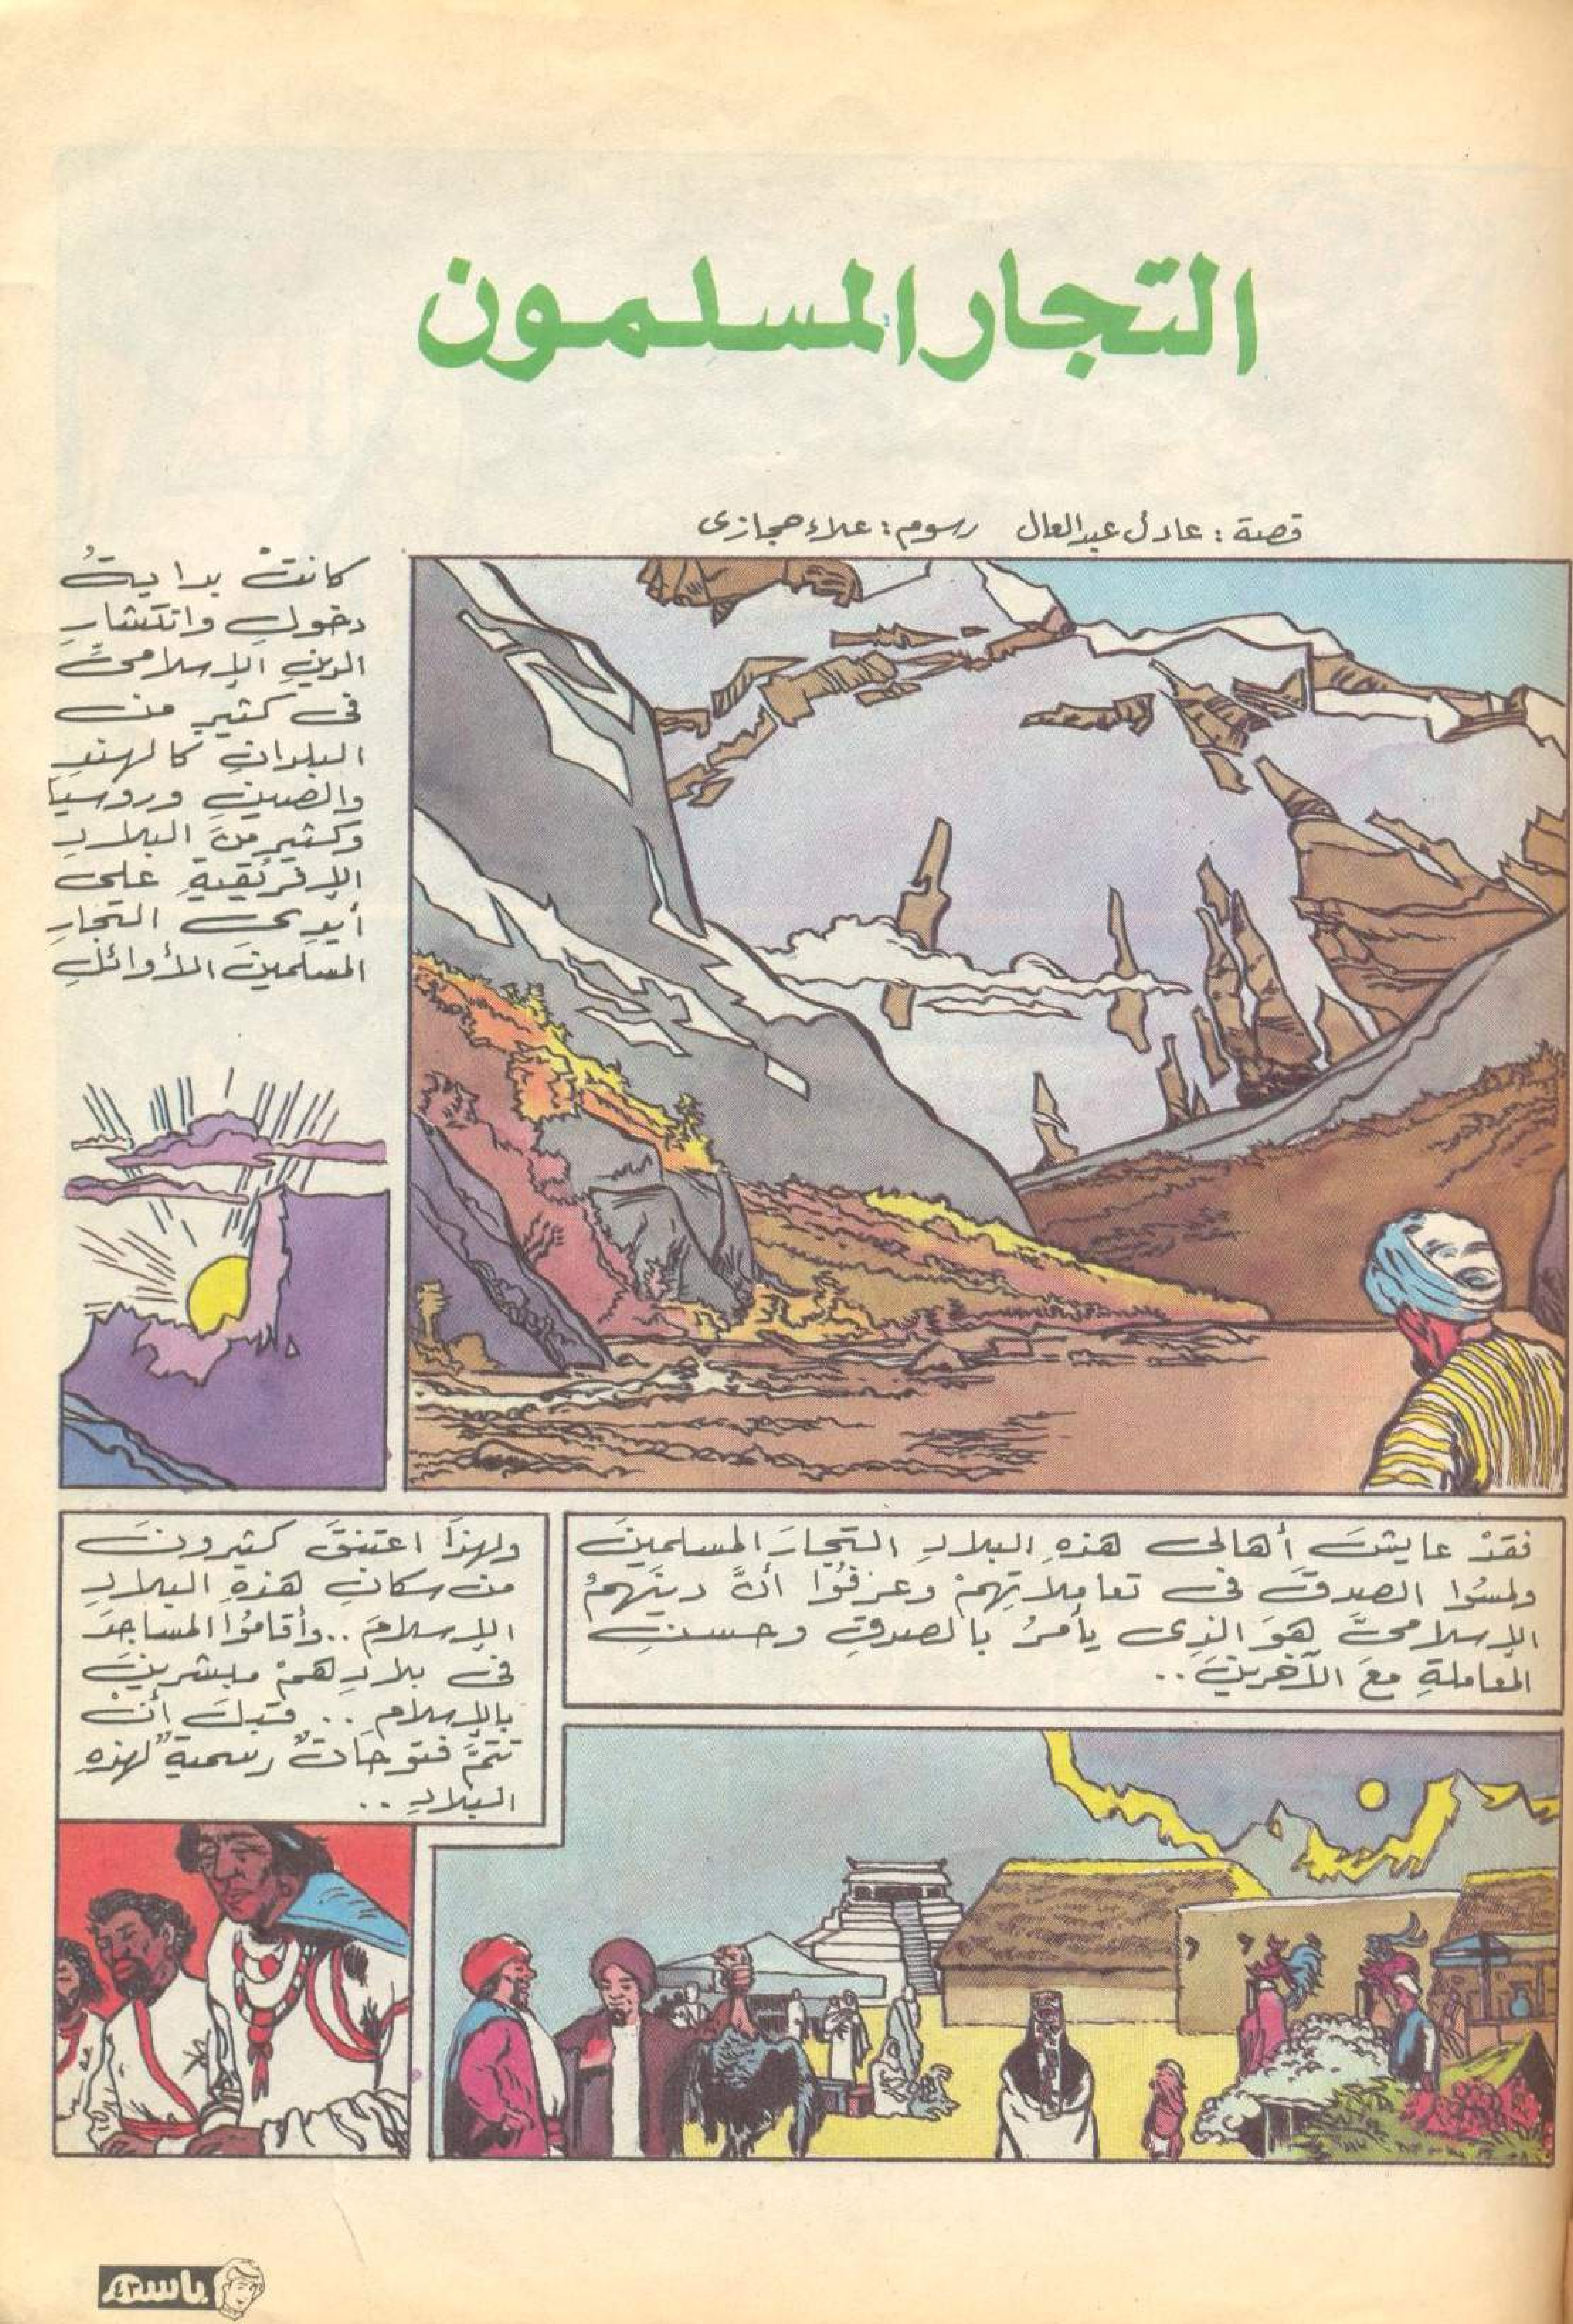 التجار المسلمون
قصة : عادل عبد العال رسوم : علاء حجازى
كانتْ بدايةُ
دخولِ وانتشارِ
الدينِ الإسلامىِّ
فى كثيرٍ من
البلدانِ كالهندِ
والصينِ وروسيا
وكثيرٍ منَ البلادِ
الإفريقيةِ على
أيدِى التجارِ
المسلمينَ الأوائلِ
فقدْ عايشَ أهالى هذهِ البلادِ التجارَ المسلمينَ
ولمسُوا الصدقَ فى تعاملاتِهمْ وعرفُوا أنَّ دينَهمْ
الإسلامىَّ هوَ الذِى يأمرُ بالصدقِ وحسنِ
المعاملةِ معَ الآخرينَ ..
ولهذَا اعتنقَ كثيرونَ
من سكانِ هذهِ البلادِ
الإسلامَ .. وأقامُوا المساجدَ
فى بلادِهمْ مبشرينَ
بالإسلامِ .. قبلَ أنْ
تتمَّ فتوحاتٌ رسميةٌ لهذهِ
البلادِ ..
باسم